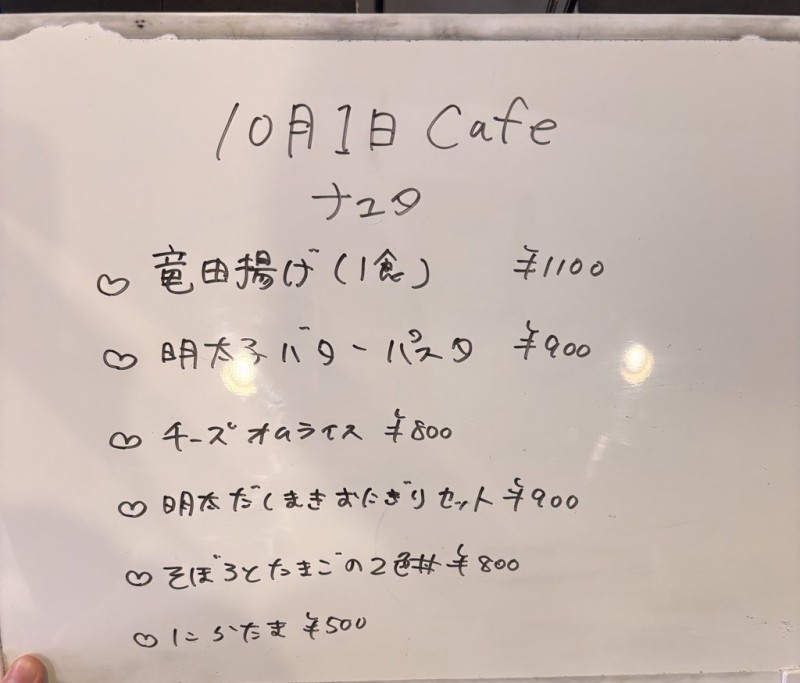 10月1日 Cafe
ナユタ
♡ 竜田揚げ(1食) ¥1100
♡ 明太子バターパスタ ¥900
♡ チーズオムライス ¥800
♡ 明太だしまきおにぎりセット ¥900
♡ そぼろとたまごの2色丼 ¥800
♡ にらたま ¥500